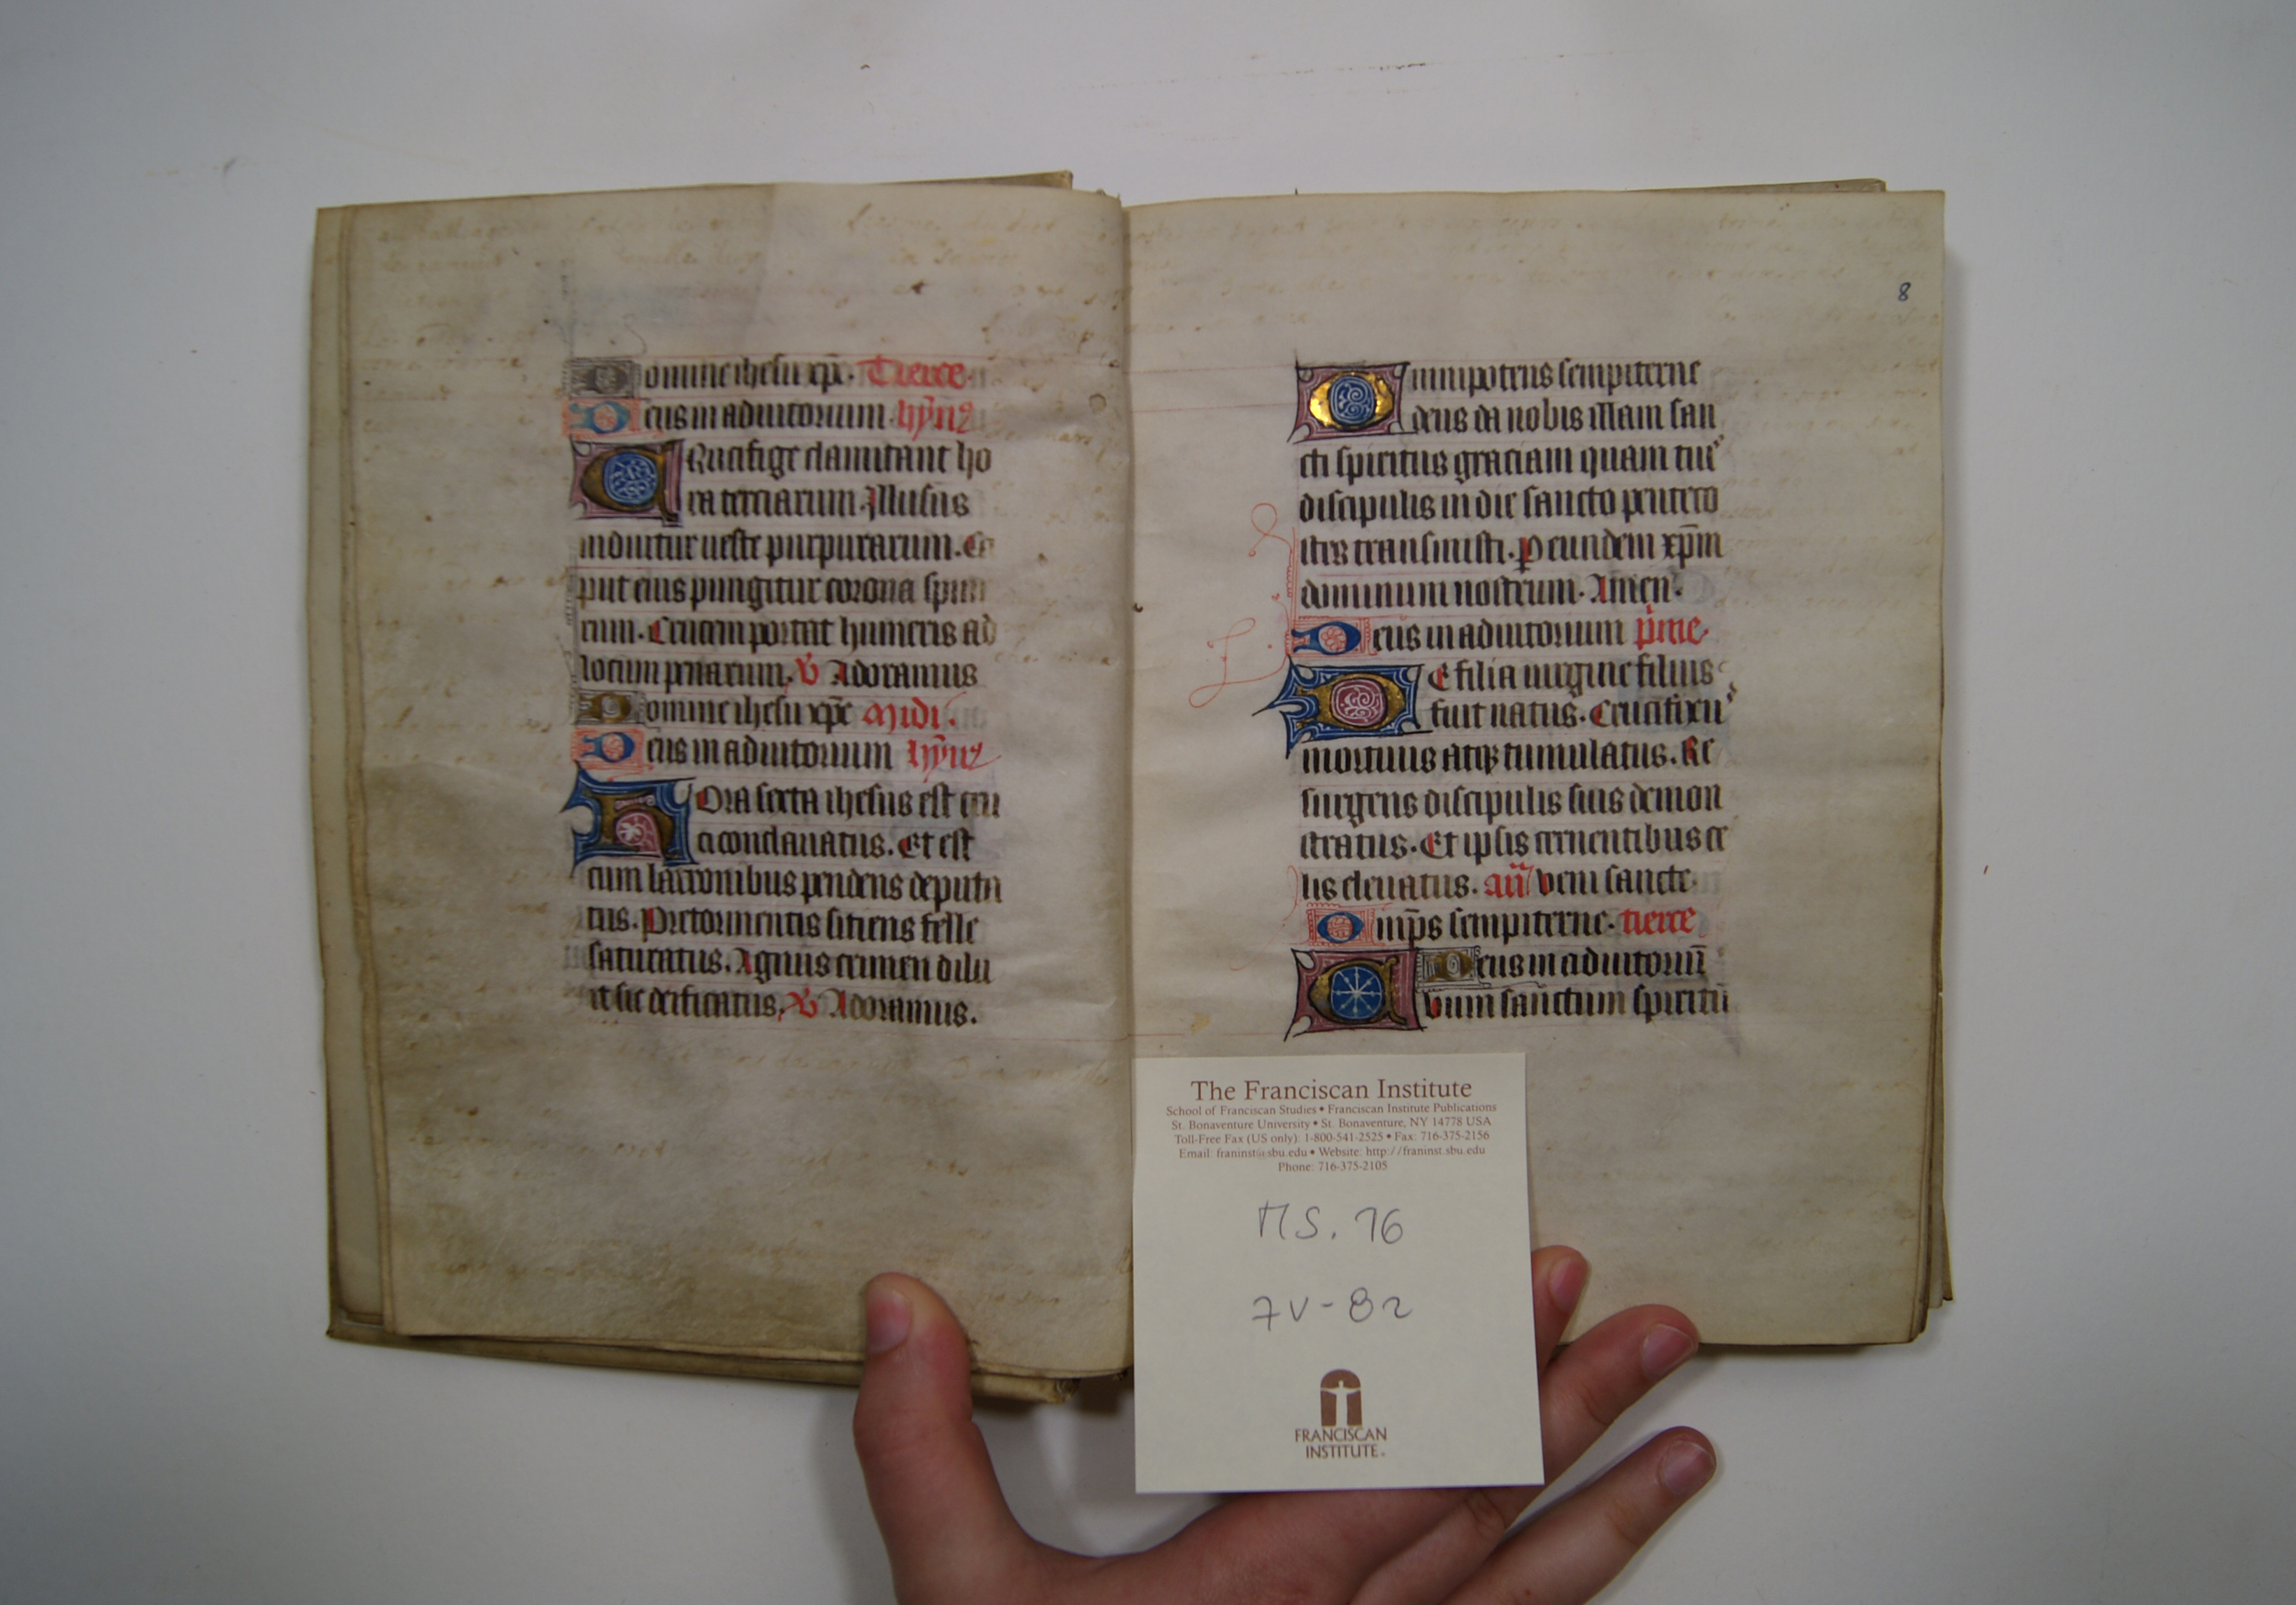 Domine ihesu xpe. Tierce.
Deus in adiutorium. hyn9
CRucifige clamitant ho
ra terciarum. Illusus
induitur ueste purpurarum. Ca
put eius pungitur corona spina
rum. Crucem portat humeris ad
locum penarum. V Adoramus
Domine ihesu xpe midi.
Deus in adiutorium hyn
HOra sexta ihesus est cru
ci conclauatus. Et est
cum latronibus pendens deputa
tus. Pretormentis sitiens felle
saturatus. Agnus crimen dilu
it sic deificatus. V Adoramus.
8
Omnipotens sempiterne
deus da nobis illam san
cti spiritus graciam quam tui
discipulis in die sancto penteco
stes transmisti. P eundem xp̄m
dominum nostrum. Amen.
Deus in adiutorium p̄me.
DE filia uirgine filius
fuit natus. Crucifixu
mortuus atqꝫ tumulatus. Re
surgens discipulis suis demon
stratus. Et ipsis cernentibus ce
lis eleuatus. añ Veni sancte.
Omp̄s sempiterne. tierce
Deus in adiutoriū
Suum sanctum spiritū
The Franciscan Institute
School of Franciscan Studies • Franciscan Institute Publications
St. Bonaventure University • St. Bonaventure, NY 14778 USA
Toll-Free Fax (US only): 1-800-541-2525 • Fax: 716-375-2156
Email: franinst@sbu.edu • Website: http://franinst.sbu.edu
Phone: 716-375-2105
MS. 76
7v-8r
FRANCISCAN
INSTITUTE